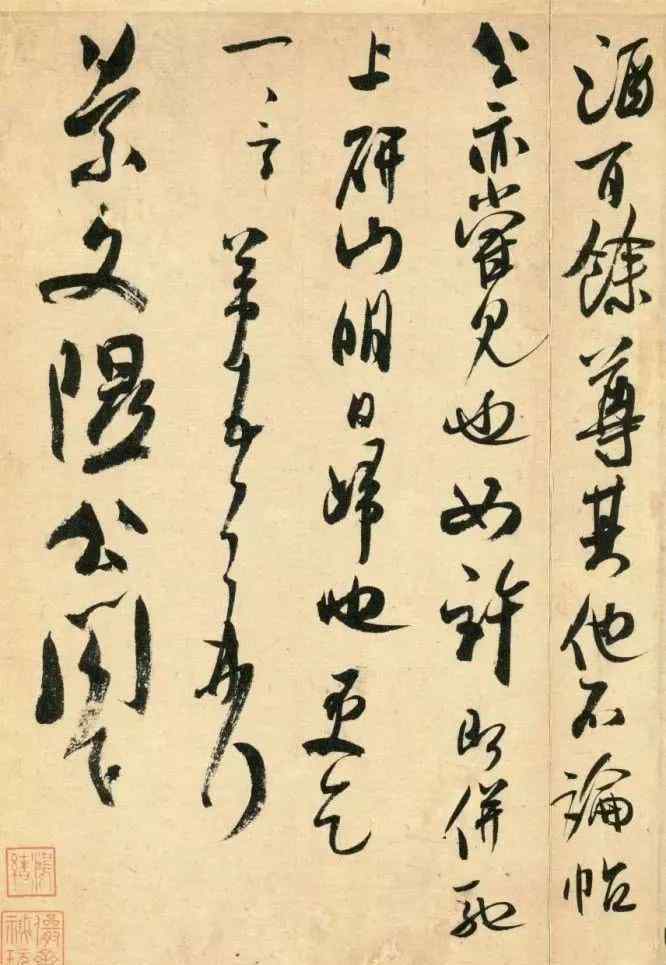 酒百餘尊其他不論帖
公亦嘗見也如許即併馳
上研山明日歸也更乞
一言芾頓首再拜
景文隰公閣下